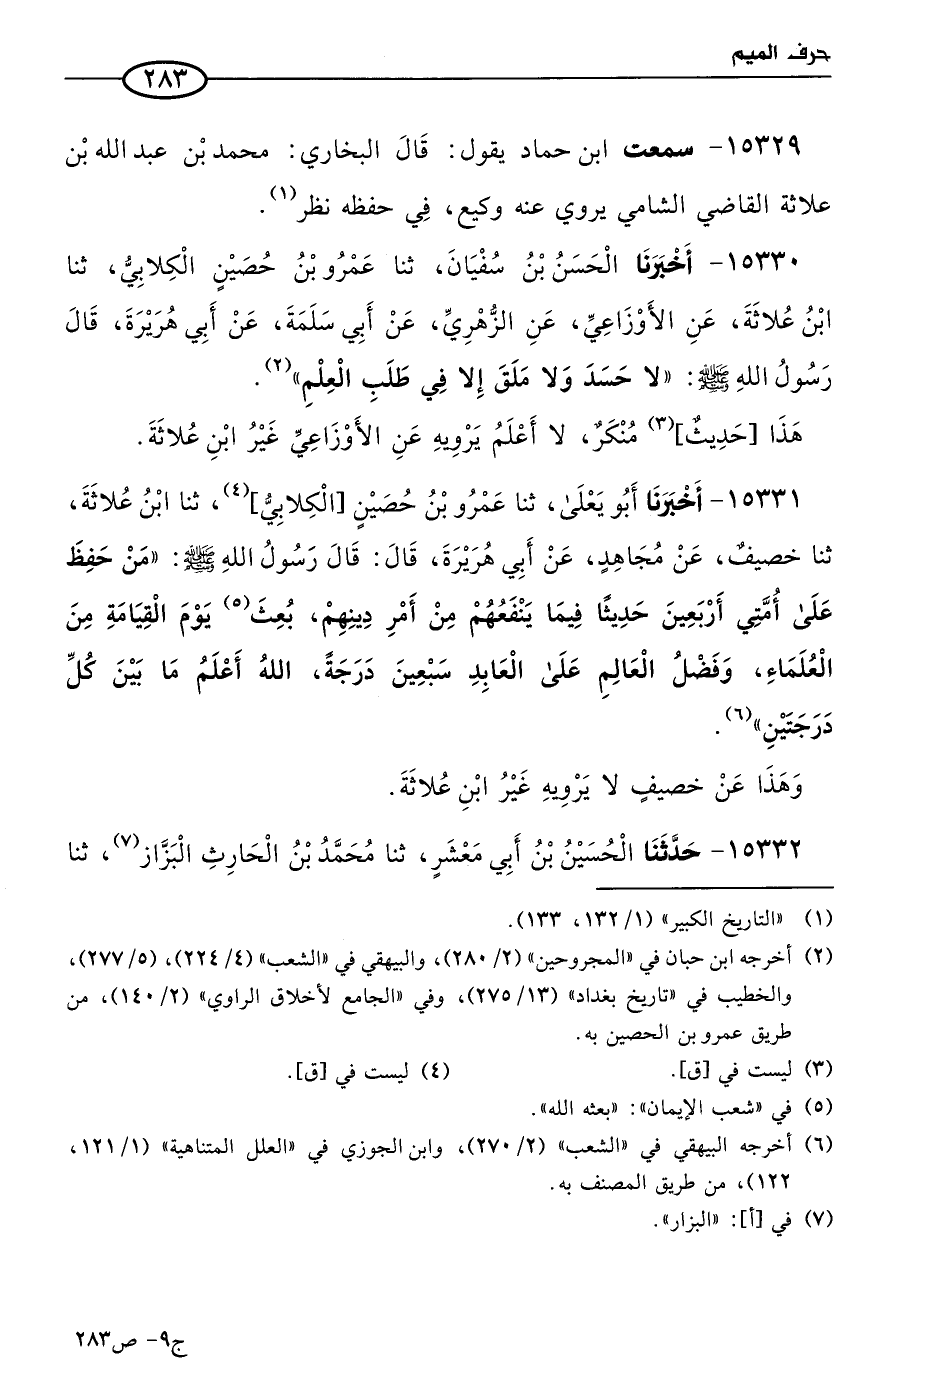 حرف الميم
٢٨٣
١٥٣٢٩- سمعت ابن حماد يقول: قَالَ البخاري: محمد بْن عبد الله بْن
علاثة القاضي الشامي يروي عنه وكيع، فِي حفظه نظر(١).
١٥٣٣٠- أَخْبَرَنَا الْحَسَنُ بْنُ سُفْيَانَ، ثنا عَمْرُو بْنُ حُصَيْنٍ الْكِلابِيُّ، ثنا
ابْنُ عُلاثَةَ، عَنِ الأَوْزَاعِيِّ، عَنِ الزُّهْرِيِّ، عَنْ أَبِي سَلَمَةَ، عَنْ أَبِي هُرَيْرَةَ، قَالَ
رَسُولُ اللهِ ﷺ: «لا حَسَدَ وَلا مَلَقَ إِلا فِي طَلَبِ الْعِلْمِ»(٢).
هَذَا [حَدِيثٌ](٣) مُنْكَرٌ، لا أَعْلَمُ يَرْوِيهِ عَنِ الأَوْزَاعِيِّ غَيْرُ ابْنِ عُلاثَةَ.
١٥٣٣١- أَخْبَرَنَا أَبُو يَعْلَىٰ، ثنا عَمْرُو بْنُ حُصَيْنٍ [الْكِلابِيُّ](٤)، ثنا ابْنُ عُلاثَةَ،
ثنا خصيفٌ، عَنْ مُجَاهِدٍ، عَنْ أَبِي هُرَيْرَةَ، قَالَ: قَالَ رَسُولُ اللهِ ﷺ: «مَنْ حَفِظَ
عَلَىٰ أُمَّتِي أَرْبَعِينَ حَدِيثًا فِيمَا يَنْفَعُهُمْ مِنْ أَمْرِ دِينِهِمْ، بُعِثَ(٥) يَوْمَ الْقِيَامَةِ مِنَ
الْعُلَمَاءِ، وَفَضْلُ الْعَالِمِ عَلَىٰ الْعَابِدِ سَبْعِينَ دَرَجَةً، اللهُ أَعْلَمُ مَا بَيْنَ كُلِّ
دَرَجَتَيْنِ»(٦).
وَهَذَا عَنْ خصيفٍ لا يَرْوِيهِ غَيْرُ ابْنِ عُلاثَةَ.
١٥٣٣٢- حَدَّثَنَا الْحُسَيْنُ بْنُ أَبِي مَعْشَرٍ، ثنا مُحَمَّدُ بْنُ الْحَارِثِ الْبَزَّاز(٧)، ثنا
(١) «التاريخ الكبير» (١/ ١٣٢، ١٣٣).
(٢) أخرجه ابن حبان في «المجروحين» (٢/ ٢٨٠)، والبيهقي في «الشعب» (٤/ ٢٢٤)، (٥/ ٢٧٧)،
والخطيب في «تاريخ بغداد» (١٣/ ٢٧٥)، وفي «الجامع لأخلاق الراوي» (٢/ ١٤٠)، من
طريق عمرو بن الحصين به.
(٣) ليست في [ق]. (٤) ليست في [ق].
(٥) في «شعب الإيمان»: «بعثه الله».
(٦) أخرجه البيهقي في «الشعب» (٢/ ٢٧٠)، وابن الجوزي في «العلل المتناهية» (١/ ١٢١،
١٢٢)، من طريق المصنف به.
(٧) في [أ]: «البزار».
ج٩- ص٢٨٣